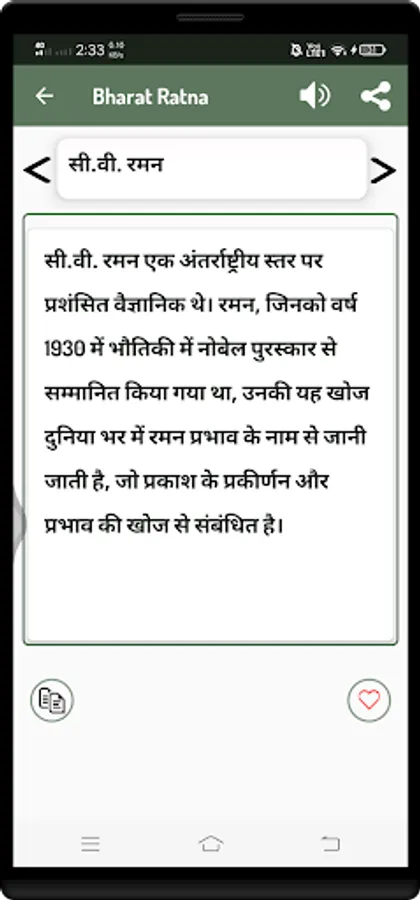 2:33
Bharat Ratna
सी.वी. रमन
सी.वी. रमन एक अंतर्राष्ट्रीय स्तर पर
प्रशंसित वैज्ञानिक थे। रमन, जिनको वर्ष
1930 में भौतिकी में नोबेल पुरस्कार से
सम्मानित किया गया था, उनकी यह खोज
दुनिया भर में रमन प्रभाव के नाम से जानी
जाती है, जो प्रकाश के प्रकीर्णन और
प्रभाव की खोज से संबंधित है।